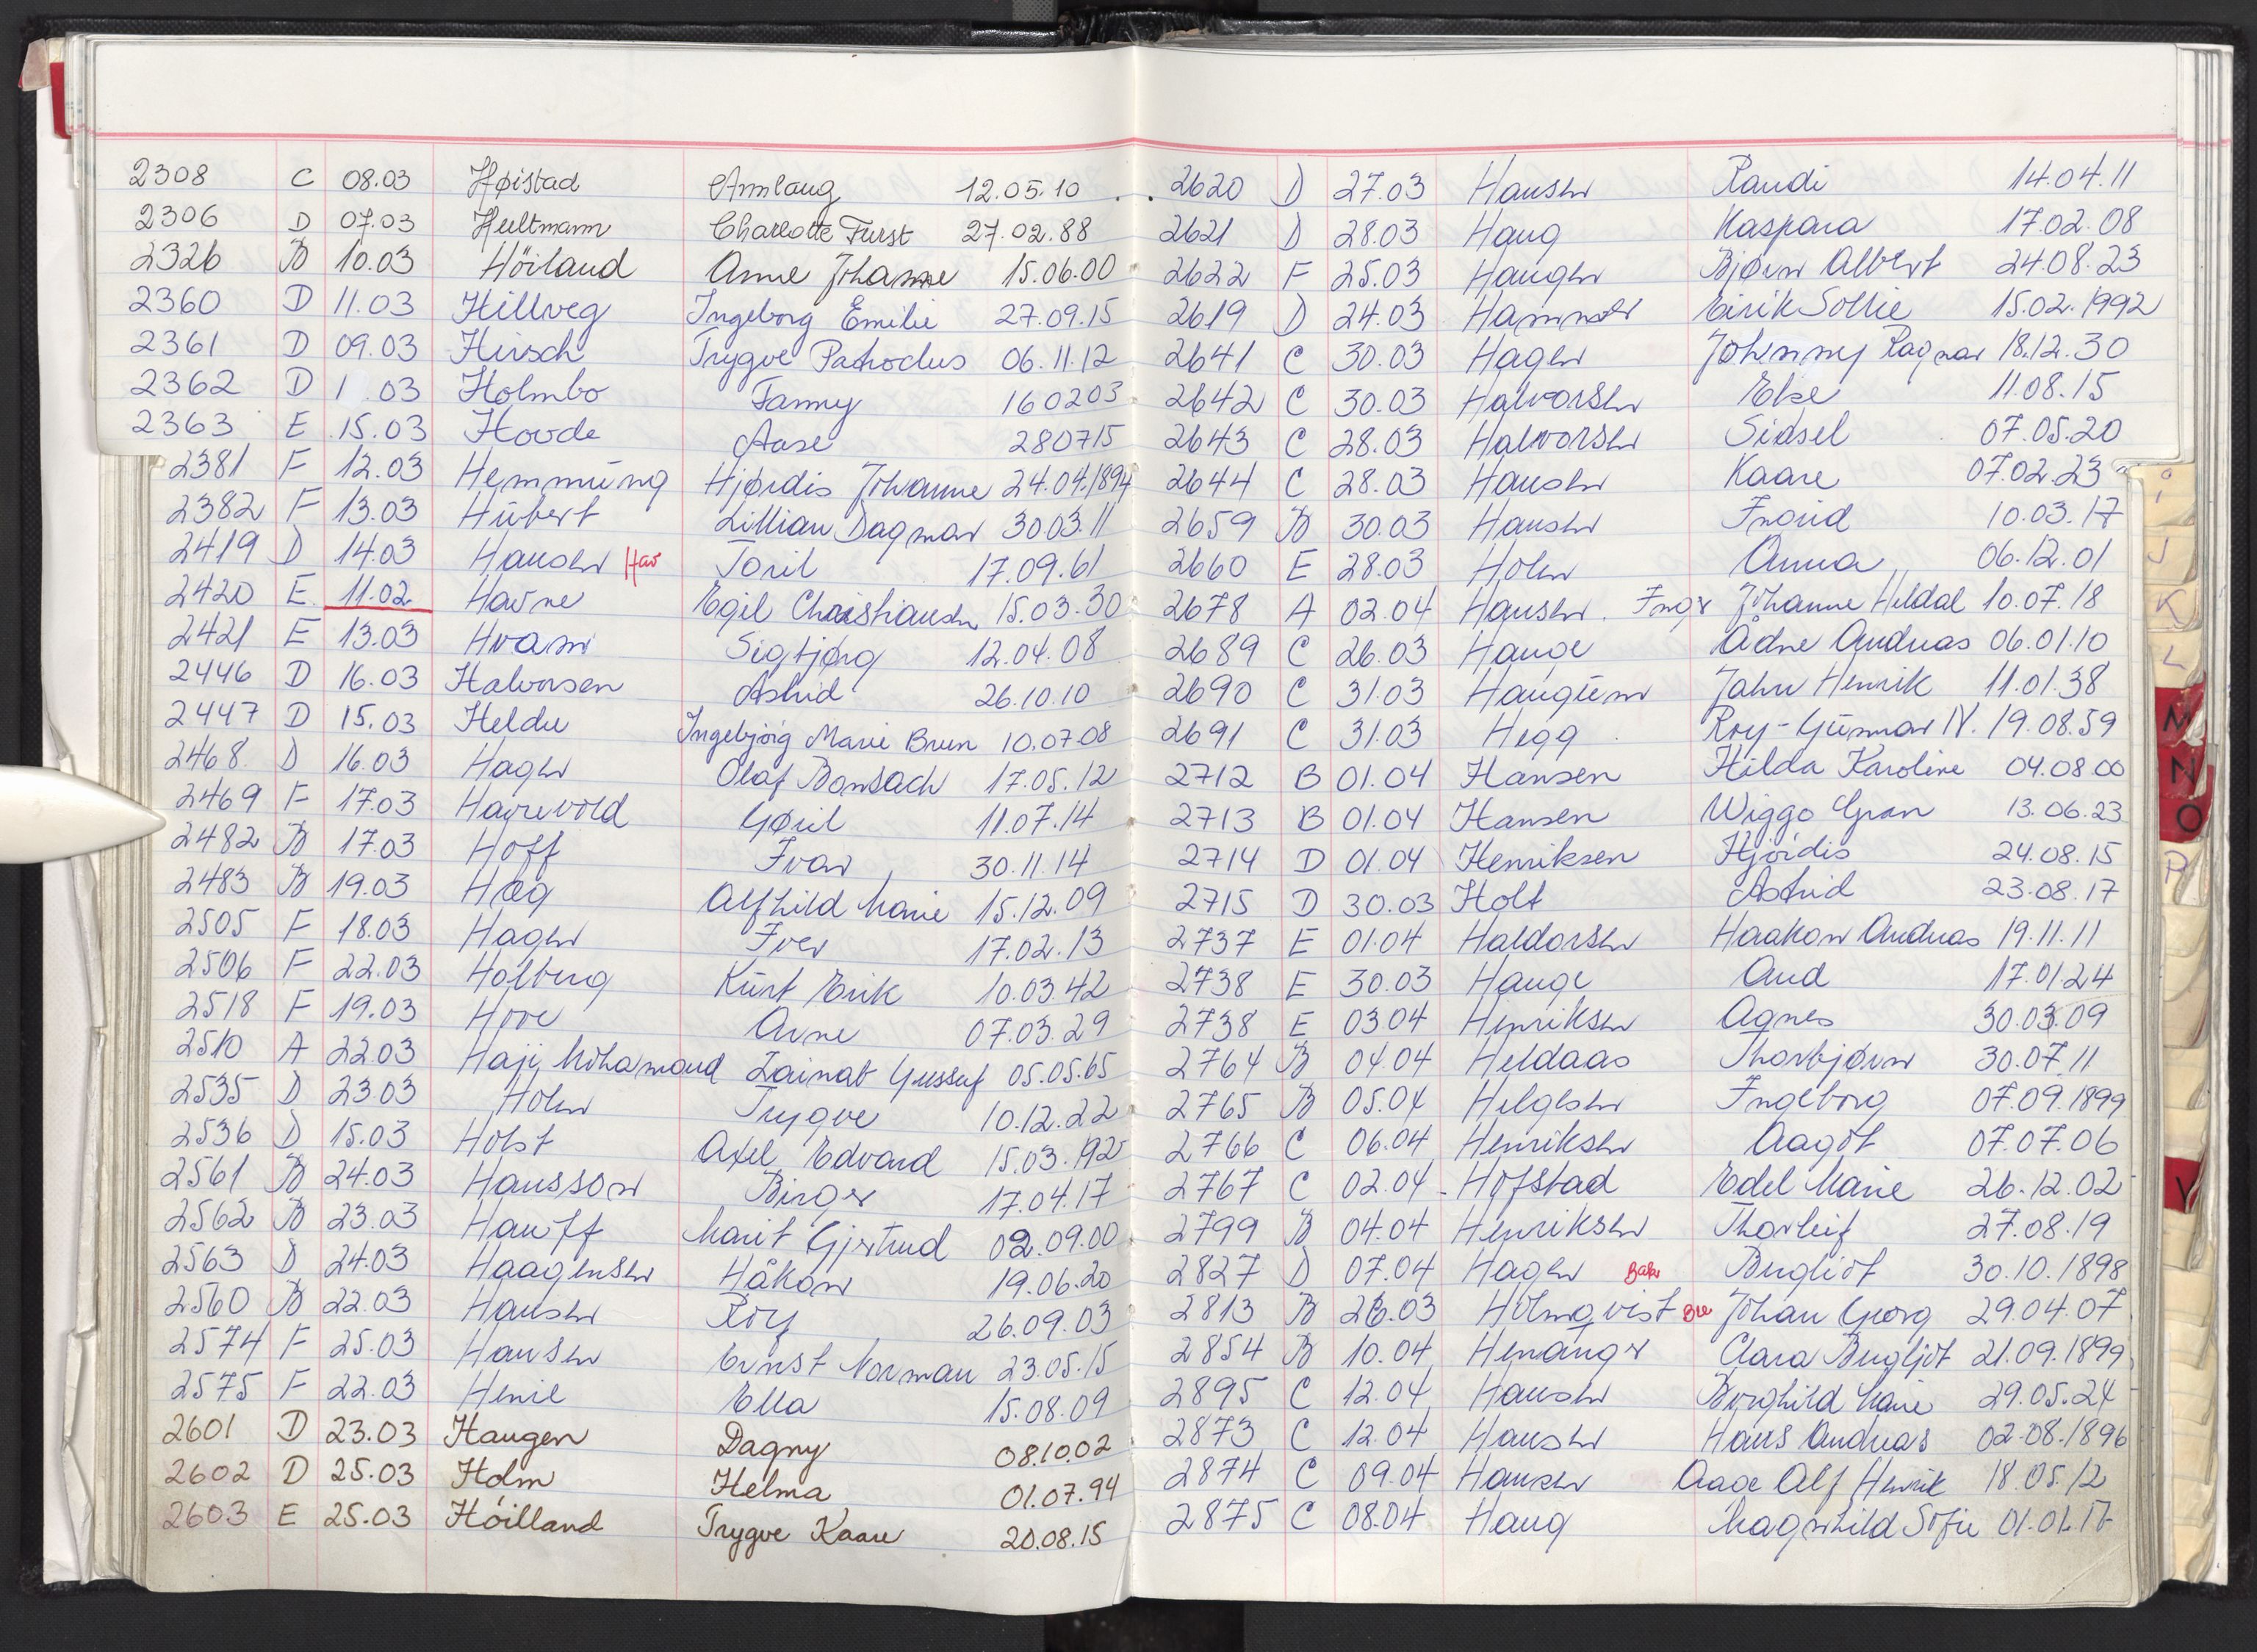 2308 C 08.03 Høistad Annlaug 12.05.10
2306 D 07.03 Hultmann Charlotte Furst 27.02.88
2326 B 10.03 Höiland Anne Johanne 15.06.00
2360 D 11.03 Hillveg Ingeborg Emilie 27.09.15
2361 D 09.03 Hirsch Trygve Patroclus 06.11.12
2362 D 1 .03 Holmbo Fanny 160203
2363 E 15.03 Hovde Aase 280715
2381 F 12.03 Hemmung Hjørdis Johanne 24.04.1894
2382 F 13.03 Hübert Lillian Dagmar 30.03.11
2419 D 14.03 Hansen Hav Toril 17.09.61
2420 E 11.02 Havne Egil Christiansen 15.03.30
2421 E 13.03 Hvam Sigbjørg 12.04.08
2446 D 16.03 Halvorsen Astrid 26.10.10
2447 D 15.03 Heldu Ingebjörg Marie Brun 10.07.08
2468 D 16.03 Hagen Olaf Bonsach 17.05.12
2469 F 17.03 Haarevold Gøril 11.07.14
2482 B 17.03 Hoff Ivar 30.11.14
2483 B 19.03 Hæg Alfhild Marie 15.12.09
2505 F 18.03 Hagen Iver 17.02.13
2506 F 22.03 Holberg Kurt Erik 10.03.42
2518 F 19.03 Hove Arne 07.03.29
2510 A 22.03 Haji Mohamoud Zainab Yussuf 05.05.65
2535 D 23.03 Holm Trygve 10.12.22
2536 D 15.03 Holst Axel Edvard 15.03.1925
2561 B 24.03 Hansson Birger 17.04.17
2562 B 23.03 Hauff Marit Gjertrud 02.09.00
2563 D 24.03 Haagensen Håkon 19.06.20
2560 B 22.03 Hansen Roy 26.09.03
2574 F 25.03 Hansen Ernst Norman 23.05.15
2575 F 22.03 Henie Ella 15.08.09
2601 D 23.03 Haugen Dagny 08.10.02
2602 D 25.03 Holm Helma 01.07.94
2603 E 25.03 Höilland Trygve Kaare 20.08.15
2620 D 27.03 Hansen Randi 14.04.11
2621 D 28.03 Haug Kaspara 17.02.08
2622 F 25.03 Haugen Bjørn Albert 24.08.23
2619 D 24.03 Hammer Eirik Sollie 15.02.1992
2641 C 30.03 Hagen Johnny Ragnar 18.12.30
2642 C 30.03 Halvorsen Else 11.08.15
2643 C 28.03 Halvorsen Sidsel 07.05.20
2644 C 28.03 Hansen Kaare 07.02.23
2659 B 30.03 Hansen Ingrid 10.03.17
2660 E 28.03 Holm Anna 06.12.01
2678 A 02.04 Hansen Inger Johanne Heldal 10.07.18
2689 C 26.03 Hauge Ådne Andreas 06.01.10
2690 C 31.03 Haugum John Henrik 11.01.38
2691 C 31.03 Hegg Roy-Gunnar N. 19.08.59
2712 B 01.04 Hansen Hilda Karoline 04.08.00
2713 B 01.04 Hansen Wiggo Gran 13.06.23
2714 D 01.04 Henriksen Hjördis 24.08.15
2715 D 30.03 Holt Astrid 23.08.17
2737 E 01.04 Haldorsen Haakon Andreas 19.11.11
2738 E 30.03 Hauge Aud 17.01.24
2738 E 03.04 Henriksen Agnes 30.03.09
2764 B 04.04 Heldaas Thorbjørn 30.07.11
2765 B 05.04 Helgesen Ingeborg 07.09.1899
2766 C 06.04 Henriksen Aagot 07.07.06
2767 C 02.04 Hofstad Edel Marie 26.12.02
2799 B 04.04 Henriksen Thorleif 27.08.19
2827 D 07.04 Hagen Bergliot 30.10.1898
2813 B 26.03 Holmqvist Johan Georg 29.04.07
2854 B 10.04 Henanger Clara Bergljot 21.09.1899
2895 C 12.04 Hansen Borghild Marie 29.05.24
2873 C 12.04 Hansen Hans Andreas 02.08.1896
2874 C 09.04 Hansen Aage Alf Henrik 18.05.12
2875 C 08.04 Haug Magnhild Sofie 01.01.17
i
J
K
L
M
N
O
P
V